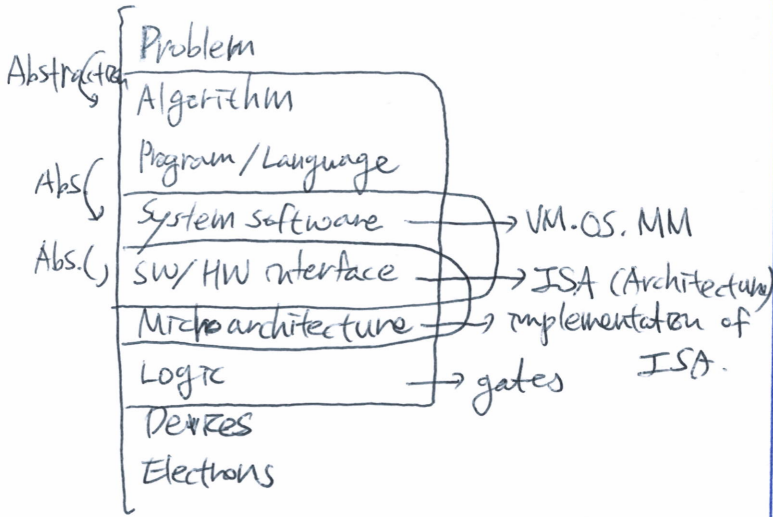 Problem
Abstraction
Algorithm
Program/Language
Abs
System software → VM.OS.MM
Abs.
SW/HW interface → ISA (Architecture)
Microarchitecture → implementation of
ISA.
Logic → gates
Devices
Electrons